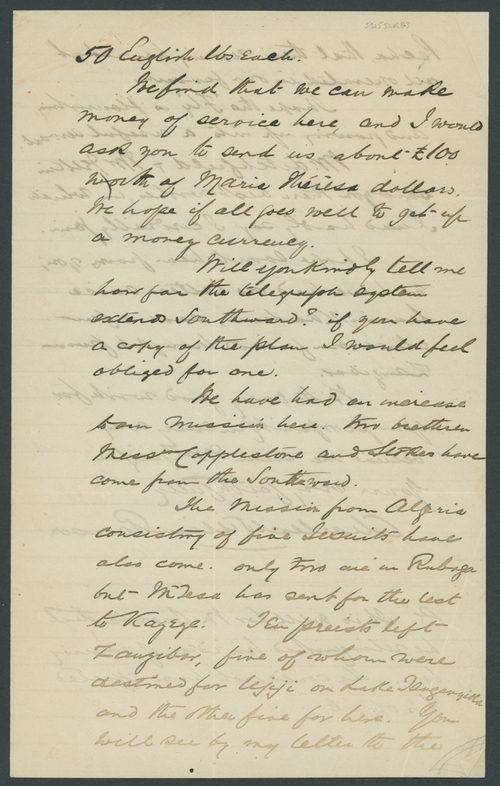 50 English lbs each.
We find that we can make
money of service here and I would
ask you to send us about £100
worth of Maria Theresa dollars.
We hope if all goes well to get up
a money currency.
Will you kindly tell me
how far the telegraph system
extends Southward? if you have
a copy of the plan I would feel
obliged for one.
We have had an increase
to our Mission here. two brethren
Messrs Copplestone and Stokes have
come from the Southward.
The Mission from Algeria
consisting of five Jesuits have
also come. only two are in Rubaga
but Mtesa has sent for the rest
to Kageye. Ten preists left
Zanzibar, five of whom were
destined for Ujiji on Lake Tanganyika
and the other five for here. You
will see by my letter to the